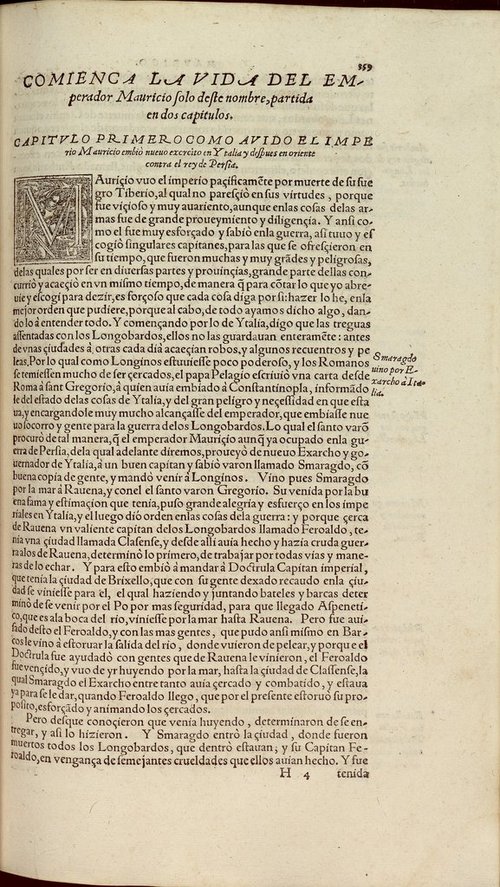 359
COMIENCA LA VIDA DEL EM-
perador Mauricio solo deste nombre, partida
en dos capitulos.
CAPITVLO PRIMERO COMO AVIDO EL IMPE
rio Mauricio embiò nueuo exercito en Ytalia y despues en oriente
contra el rey de Persia.
MAuriçio vuo el imperio paçificamẽte por muerte de su sue
gro Tiberio, al qual no paresçiò en sus virtudes, porque
fue viçioso y muy auariento, aunque enlas cosas delas ar-
mas fue de grande proueymiento y diligençia. Y ansi co-
mo el fue muy esforçado y sabio enla guerra, asi tuuo y es
cogiò singulares capitanes, para las que se ofresçieron en
su tiempo, que fueron muchas y muy grãdes y peligrosas,
delas quales por ser en diuersas partes y prouinçias, grande parte dellas con-
curriò y acaeçiò en vn mismo tiempo, de manera q̃ para cõtar lo que yo abre-
uie y escogi para dezir, es forçoso que cada cosa diga por si: hazer lo he, enla
mejor orden que pudiere, porque al cabo, de todo ayamos dicho algo, dan-
do lo à entender todo. Y començando por lo de Ytalia, digo que las treguas
assentadas con los Longobardos, ellos no las guardauan enteramẽte: antes
de vnas çiudades à otras cada dia acaeçian robos, y algunos recuentros y pe
leas. Por lo qual como Longinos estuuiesse poco poderoso, y los Romanos
se temiessen mucho de ser çercados, el papa Pelagio escriuiò vna carta desde
Roma à sant Gregorio, à quien auia embiado à Constantinopla, informãdo
le del estado delas cosas de Ytalia, y del gran peligro y neçessidad en que esta
ua, y encargandole muy mucho alcançasse del emperador, que embiasse nue
uo socorro y gente para la guerra delos Longobardos. Lo qual el santo varõ
procurò de tal manera, q̃ el emperador Mauriçio aunq̃ ya ocupado enla gu-
erra de Persia, dela qual adelante diremos, proueyò de nueuo Exarcho y go-
uernador de Ytalia, à un buen capitan y sabio varon llamado Smaragdo, cõ
buena copia de gente, y mandò venir à Longinos. Vino pues Smaragdo
por la mar à Rauena, y con el el santo varon Gregorio. Su venida por la bu
ena fama y estimaçion que tenia, puso grande alegria y esfuerço en los impe
riales en Ytalia, y el luego diò orden enlas cosas dela guerra: y porque çerca
de Rauena vn valiente capitan delos Longobardos llamado Feroaldo, te-
nia vna çiudad llamada Classense, y desde alli auia hecho y hazia cruda guer
ra alos de Rauena, determinò lo primero, de trabajar por todas vias y mane-
ras de lo echar. Y para esto embiò à mandar à Doctrula Capitan imperial,
que tenia la çiudad de Brixello, que con su gente dexado recaudo enla çiu-
dad se viniesse para el, el qual haziendo y juntando bateles y barcas deter
minò de se venir por el Po por mas seguridad, para que llegado Aspeneti-
co, que es ala boca del rio, viniesse por la mar hasta Rauena. Pero fue aui-
sado desto el Feroaldo, y con las mas gentes, que pudo ansi mismo en Bar-
cos le vino à estoruar la salida del rio, donde vuieron de pelear, y porque el
Doctrula fue ayudadò con gentes que de Rauena le vinieron, el Feroaldo
fue vençido, y vuo de yr huyendo por la mar, hasta la çiudad de Classense, la
qual Smaragdo el Exarcho entre tanto auia çercado y combatido, y estaua
ya para se le dar, quando Feroaldo llego, que por el presente estoruò su pro-
posito, esforçãdo y animando los çercados.
Pero desque conoçieron que venia huyendo, determinaron de se en-
tregar, y asi lo hizieron. Y Smaragdo entrò la çiudad, donde fueron
muertos todos los Longobardos, que dentrò estauan; y su Capitan Fe-
roaldo, en vengança de semejantes crueldades que ellos auian hecho. Y fue
H 4 tenida
Smaragdo
uino por E-
xarcho à Ita-
lia.